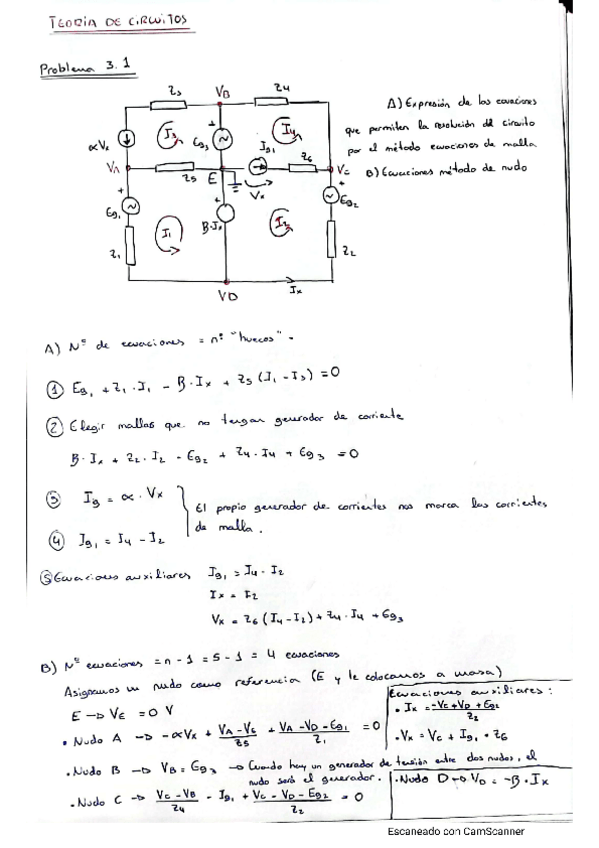 TEORIA DE CIRCUITOS
Problema 3.1
A) Expresión de las ecuaciones
que permiten la resolución del circuito
por el método ecuaciones de malla
B) Ecuaciones método de nudo
Z3
VB
Z4
αVx
I3
Eg3
I4
Ig1
Z6
VA
Z5
E
Vx
VC
Eg1
I1
B·Ix
I2
Eg2
Z1
Z2
VD
Ix
A) Nº de ecuaciones = nº "huecos".
① Eg1 + Z1 · I1 - B·Ix + Z5 (I1 - I3) = 0
② Elegir mallas que no tengan generador de corriente
B·Ix + Z2·I2 - Eg2 + Z4·I4 + Eg3 = 0
③ Ig = α · Vx
④ Ig1 = I4 - I2
El propio generador de corrientes nos marca las corrientes
de malla.
⑤ Ecuaciones auxiliares Ig1 = I4 - I2
Ix = I2
Vx = Z6 (I4 - I2) + Z4·I4 + Eg3
B) Nº ecuaciones = n - 1 = 5 - 1 = 4 ecuaciones
Asignamos un nudo como referencia (E y le colocamos a masa)
E → VE = 0 V
• Nudo A → -αVx + VA-VE/Z5 + VA-VD-Eg1/Z1 = 0
• Nudo B → VB = Eg3 → Cuando hay un generador de tensión entre dos nudos, el
nudo será el generador.
• Nudo C → VC-VB/Z4 - Ig1 + VC-VD-Eg2/Z2 = 0
Ecuaciones auxiliares:
• Ix = -VC+VD+Eg2/Z2
• Vx = VC + Ig1 · Z6
• Nudo D → VD = -B·Ix
Escaneado con CamScanner